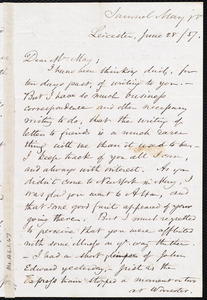 Samuel May Jr
Leicester, June 28/57.
Dear Mr May,
I have been thinking daily, for
ten days past, of writing to you -
But I have so much business
correspondence and other necessary
writing to do, that the writing of
letters to friends is a much rarer
thing with me than it used to be.
I keep track of you all I can,
and always with interest. As you
didn't come to in May, I
was glad you went to Albany, and
some one good fruits appeared of your
going there. But I much regretted
to perceive that you were afflicted
with some on y'r way there -
I had a short glimpse of John
Edward yesterday, just as the
Express train stopped a moment or two
at Worcester.